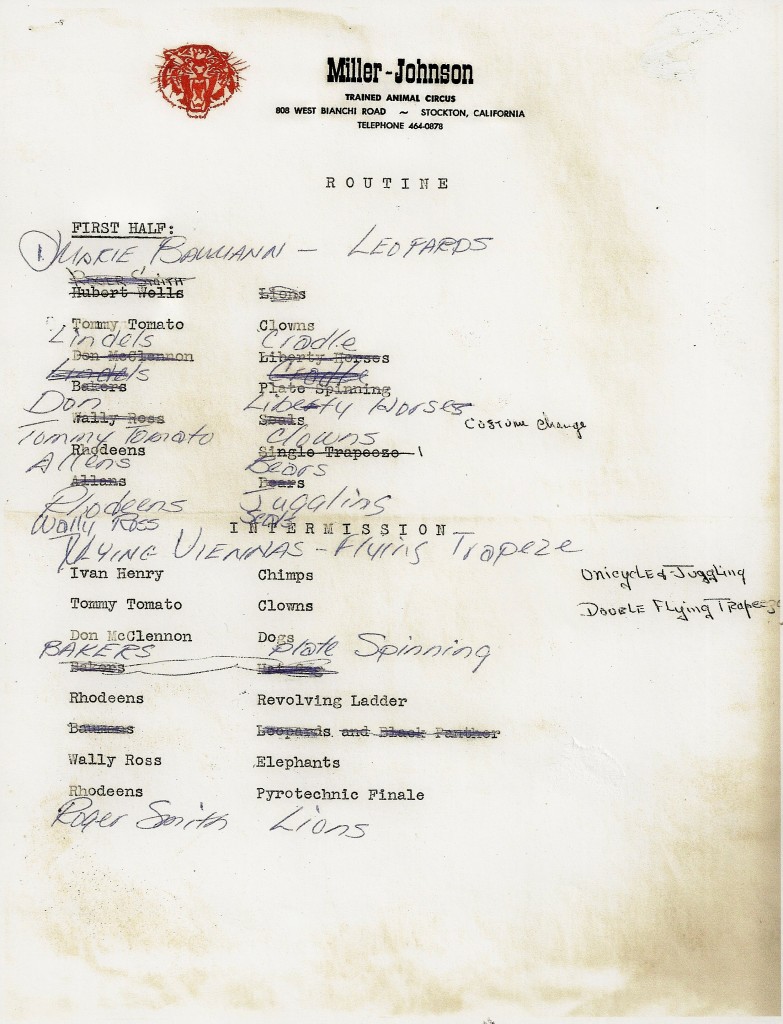 Miller-Johnson
TRAINED ANIMAL CIRCUS
808 WEST BIANCHI ROAD ~ STOCKTON, CALIFORNIA
TELEPHONE 464-0878
ROUTINE
FIRST HALF:
1. MARIE BAUMANN - LEOPARDS
ROGER SMITH
Hubert Wells Lions
Tommy Tomato Clowns
Lindels Cradle
Don McClennon Liberty Horses
Lindels Cradle
Bakers Plate Spinning
Don Liberty Horses
Wally Ross Seals Costume Change
Tommy Tomato Clowns
Rhodeens Single Trapeeze
Allens Bears
Allans Bears
Rhodeens Juggling
Wally Ross Seals
INTERMISSION
FLYING VIENNAS - Flying Trapeze
Ivan Henry Chimps UnicyclE & Juggling
Tommy Tomato Clowns DoublE Flying Trapeeze
Don McClennon Dogs
BAKERS Plate Spinning
Bakers
Rhodeens Revolving Ladder
Baumans Leopards and Black Panther
Wally Ross Elephants
Rhodeens Pyrotechnic Finale
Roger Smith Lions